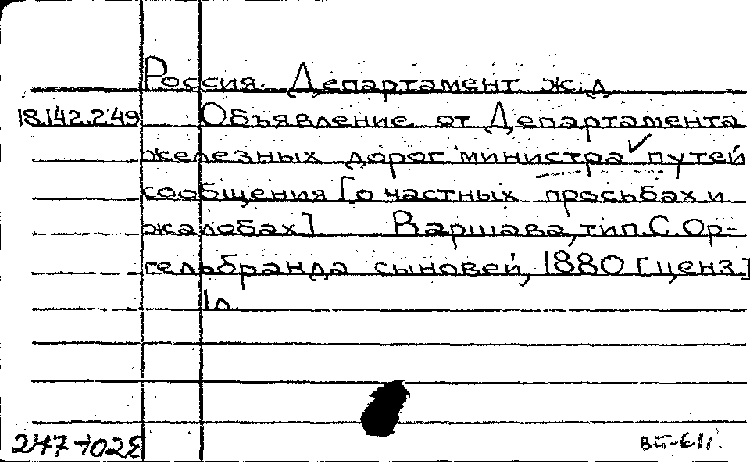 Россия. Департамент ж.д
18.142.2.49 Объявление от Департамента
железных дорог министра путей
сообщения [о частных просьбах и
жалобах] Варшава, тип. С. Ор-
гельбранда сыновей, 1880 [ценз.]
1л.
247-1028